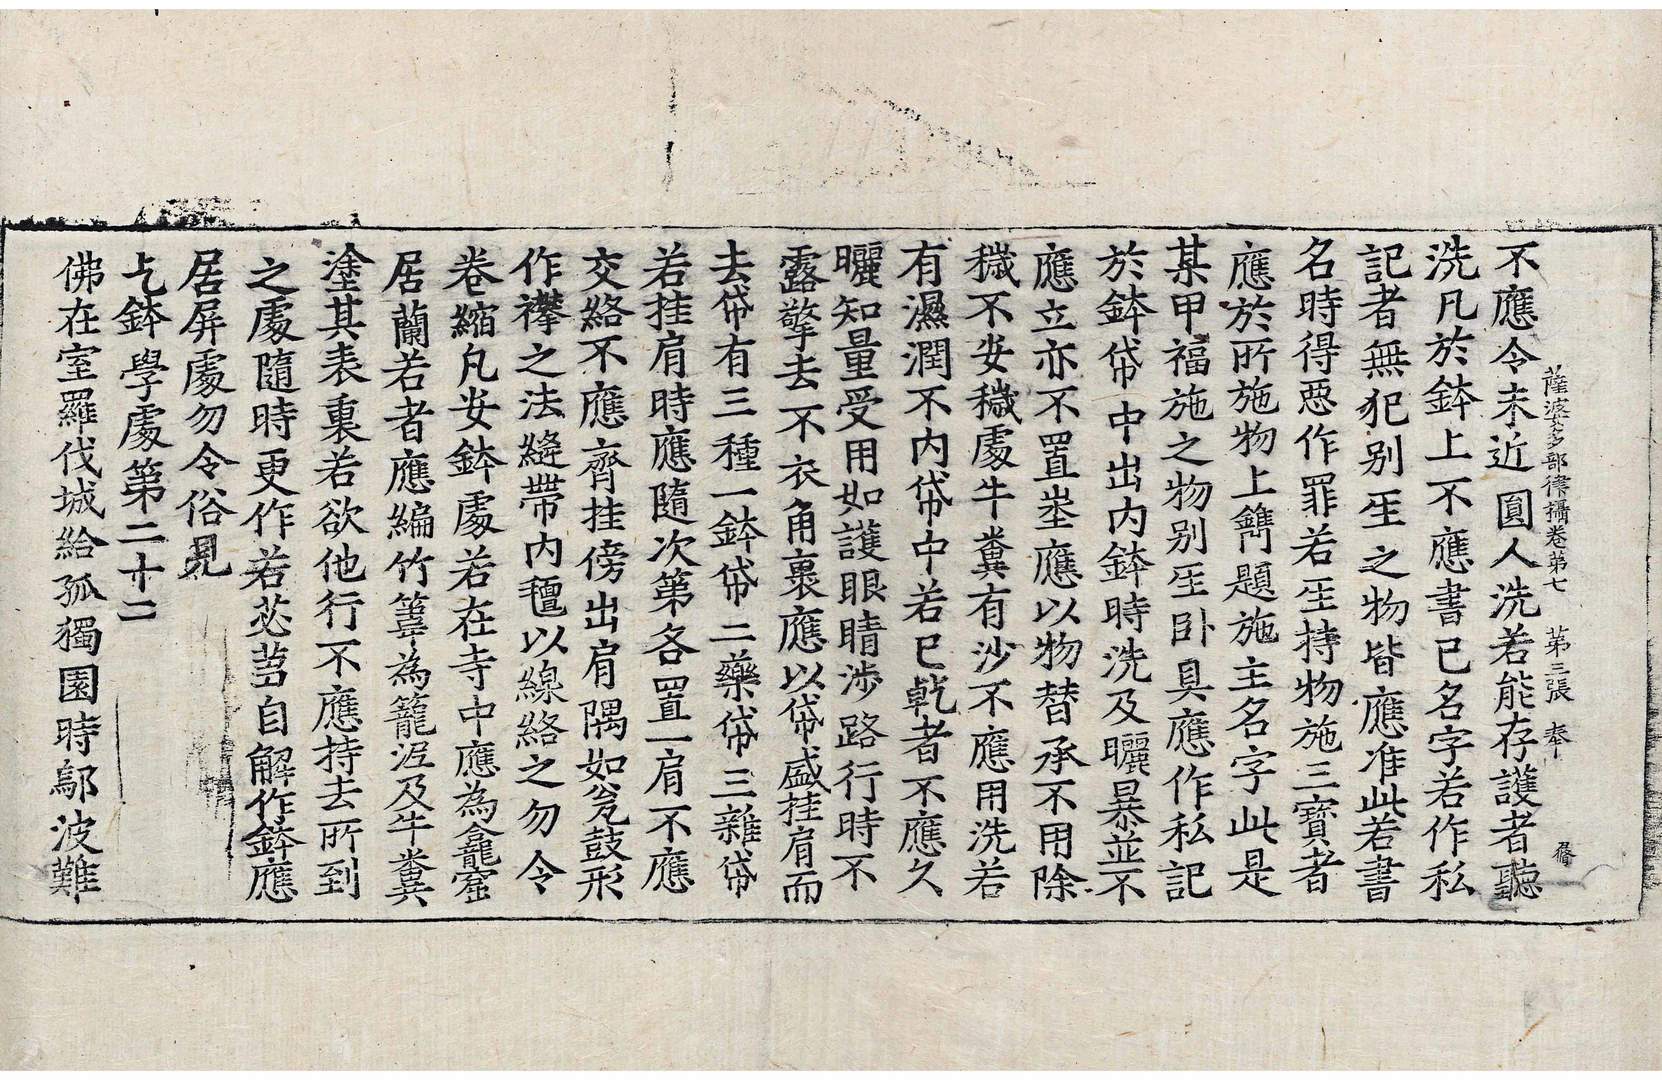 薩婆多部律攝卷第七 第三張 奉
不應令未近圓人洗若能存護者聽
洗凡於鉢上不應書已名字若作私
記者無犯别人之物皆應准此若書
名時得惡作罪若𤯔持物施三寶者
應於所施物上鐫題施主名字此是
某甲福施之物别𤯔卧具應作私記
於鉢帒中出内鉢時洗及曬暴並不
應立亦不置㘴應以物替承不用除
穢不安穢處牛糞有沙不應用洗若
有濕潤不内帒中若已乾者不應久
曬知量受用如護眼睛涉路行時不
露擎去不衣角裹應以帒盛挂肩而
去帒有三種一鉢帒二藥帒三雜帒
若挂肩時應隨次第各置一肩不應
交絡不應齊挂傍出肩隅如瓮鼓形
作襻之法縫帶内氊以線絡之勿令
卷縮凡安鉢處若在寺中應為龕窟
居蘭若者應編竹簺為籠泥及牛糞
塗其表裏若欲他行不應持去所到
之處隨時更作若苾蒭自解作鉢應
居屏處勿令俗見
乞鉢學處第二十二
佛在室羅伐城給孤獨園時鄔波難